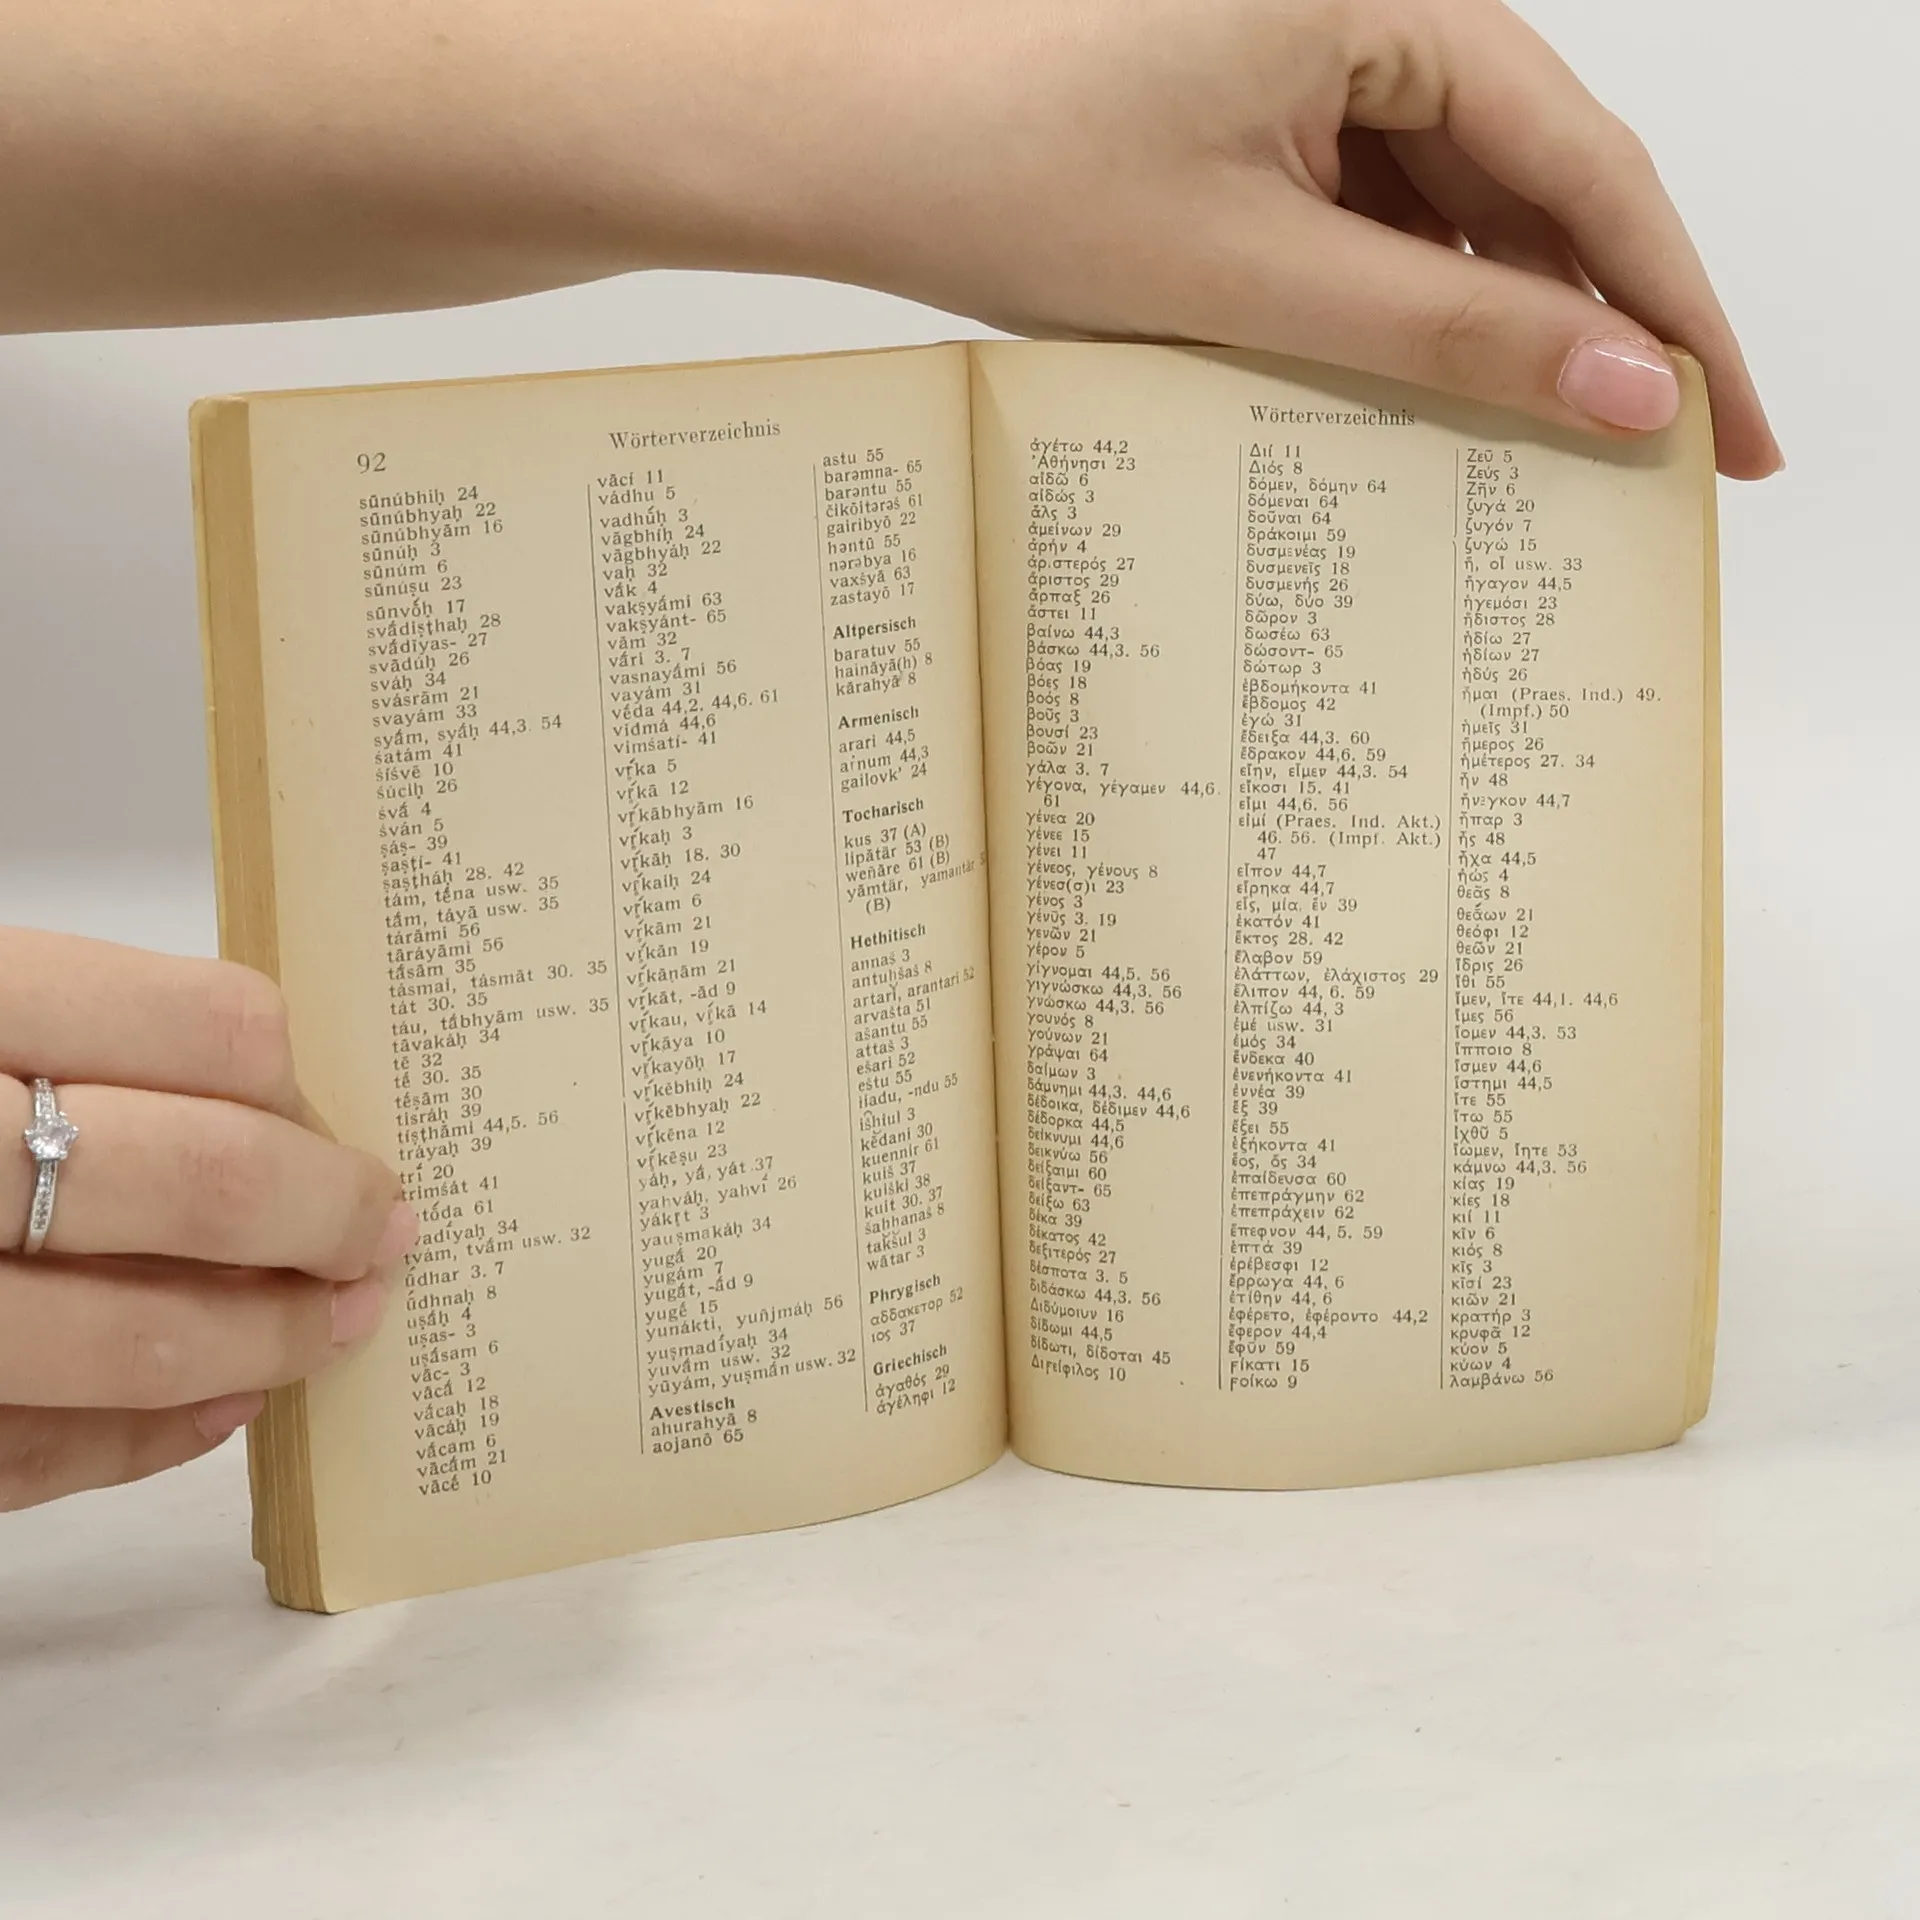 92
Wörterverzeichnis
sūnúbhiḥ 24
sūnúbhyaḥ 22
sūnúbhyām 16
sūnúḥ 3
sūnúm 6
sūnúṣu 23
sūnvṓḥ 17
svā́diṣṭhaḥ 28
svā́dīyas- 27
svādúḥ 26
sváḥ 34
svásrām 21
svayám 33
syā́m, syā́ḥ 44,3. 54
śatám 41
śíśvē 10
śúciḥ 26
śvā́ 4
śván 5
ṣáṣ- 39
ṣaṣṭí- 41
ṣaṣṭháḥ 28. 42
tám, tḗna usw. 35
tā́m, táyā usw. 35
tárāmi 56
tāráyāmi 56
tā́sām 35
tásmai, tásmāt 30. 35
tát 30. 35
táu, tā́bhyām usw. 35
tāvakáḥ 34
tē 32
tḗ 30. 35
tḗṣām 30
tisráḥ 39
tíṣṭhāmi 44,5. 56
tráyaḥ 39
trī́ 20
triṁśát 41
tṓda 61
vadíyaḥ 34
tvám, tvā́m usw. 32
ū́dhar 3. 7
ū́dhnaḥ 8
uṣā́ḥ 4
uṣas- 3
uṣā́sam 6
vāc- 3
vācā́ 12
vā́caḥ 18
vācáḥ 19
vā́cam 6
vācā́m 21
vācḗ 10
vācí 11
vádhu 5
vadhū́ḥ 3
vāgbhíḥ 24
vāgbhyáḥ 22
vaḥ 32
vā́k 4
vakṣyā́mi 63
vakṣyánt- 65
vām 32
vā́ri 3. 7
vasnayā́mi 56
vayám 31
vḗda 44,2. 44,6. 61
vidmá 44,6
viṁśatí- 41
vŕ̥ka 5
vŕ̥kā 12
vŕ̥kābhyām 16
vŕ̥kaḥ 3
vŕ̥kāḥ 18. 30
vŕ̥kaiḥ 24
vŕ̥kam 6
vŕ̥kām 21
vŕ̥kān 19
vŕ̥kāṇām 21
vŕ̥kāt, -ād 9
vŕ̥kau, vŕ̥kā 14
vŕ̥kāya 10
vŕ̥kayōḥ 17
vŕ̥kēbhiḥ 24
vŕ̥kēbhyaḥ 22
vŕ̥kēna 12
vŕ̥kēṣu 23
yáḥ, yā́, yát 37
yahváḥ, yahvī́ 26
yákr̥t 3
yauṣmakáḥ 34
yugā́ 20
yugám 7
yugā́t, -ā́d 9
yugḗ 15
yunákti, yuñjmáḥ 56
yuṣmadī́yaḥ 34
yuvā́m usw. 32
yūyám, yuṣmā́n usw. 32
Avestisch
ahurahyā 8
aojanō 65
astu 55
barəmna- 65
barəntu 55
čikōitərəš 61
gairibyō 22
həntū 55
nərəbya 16
vaxšyā 63
zastayō 17
Altpersisch
baratuv 55
haināyā(h) 8
kārahyā 8
Armenisch
arari 44,5
aṙnum 44,3
gailovk‛ 24
Tocharisch
kus 37 (A)
lipātär 53 (B)
weñāre 61 (B)
yāmtär, yamantär 5
(B)
Hethitisch
annaš 3
antuḫšaš 8
artari, arantari 52
arvašta 51
ašantu 55
attaš 3
ešari 52
eštu 55
ii̯adu, -ndu 55
išḫiul 3
kēdani 30
kuennir 61
kuiš 37
kuiški 38
kuit 30. 37
šaḫḫanaš 8
takšul 3
wātar 3
Phrygisch
αδδακετορ 52
ιος 37
Griechisch
ἀγαθός 29
ἀγέληφι 12
Wörterverzeichnis
ἀγέτω 44,2
Ἀθήνησι 23
αἰδῶ 6
αἰδώς 3
ἅλς 3
ἀμείνων 29
ἀρήν 4
ἀριστερός 27
ἄριστος 29
ἅρπαξ 26
ἄστει 11
βαίνω 44,3
βάσκω 44,3. 56
βόας 19
βόες 18
βοός 8
βοῦς 3
βουσί 23
βοῶν 21
γάλα 3. 7
γέγονα, γέγαμεν 44,6.
61
γένεα 20
γένεε 15
γένει 11
γένεος, γένους 8
γένεσ(σ)ι 23
γένος 3
γένῡς 3. 19
γενῶν 21
γέρον 5
γίγνομαι 44,5. 56
γιγνώσκω 44,3. 56
γνώσκω 44,3. 56
γουνός 8
γούνων 21
γράψαι 64
δαίμων 3
δάμνημι 44,3. 44,6
δέδοικα, δέδιμεν 44,6
δέδορκα 44,5
δείκνυμι 44,6
δεικνύω 56
δείξαιμι 60
δείξαντ- 65
δείξω 63
δέκα 39
δέκατος 42
δεξιτερός 27
δέσποτα 3. 5
διδάσκω 44,3. 56
Διδύμοιυν 16
δίδωμι 44,5
δίδωτι, δίδοται 45
Διϝείφιλος 10
Διί 11
Διός 8
δόμεν, δόμην 64
δόμεναι 64
δοῦναι 64
δράκοιμι 59
δυσμενέας 19
δυσμενεῖς 18
δυσμενής 26
δύω, δύο 39
δῶρον 3
δωσέω 63
δώσοντ- 65
δώτωρ 3
ἑβδομήκοντα 41
ἕβδομος 42
ἐγώ 31
ἔδειξα 44,3. 60
ἔδρακον 44,6. 59
εἴην, εἶμεν 44,3. 54
εἴκοσι 15. 41
εἶμι 44,6. 56
εἰμί (Praes. Ind. Akt.)
46. 56. (Impf. Akt.)
47
εἶπον 44,7
εἴρηκα 44,7
εἷς, μία, ἕν 39
ἑκατόν 41
ἕκτος 28. 42
ἔλαβον 59
ἐλάττων, ἐλάχιστος 29
ἔλιπον 44, 6. 59
ἐλπίζω 44, 3
ἐμέ usw. 31
ἐμός 34
ἕνδεκα 40
ἐνενήκοντα 41
ἐννέα 39
ἕξ 39
ἕξει 55
ἑξήκοντα 41
ἑός, ὅς 34
ἐπαίδευσα 60
ἐπεπράγμην 62
ἐπεπράχειν 62
ἔπεφνον 44, 5. 59
ἑπτά 39
ἐρέβεσφι 12
ἔρρωγα 44, 6
ἐτίθην 44, 6
ἐφέρετο, ἐφέροντο 44,2
ἔφερον 44,4
ἔφῡν 59
ϝίκατι 15
ϝοίκω 9
Ζεῦ 5
Ζεύς 3
Ζῆν 6
ζυγά 20
ζυγόν 7
ζυγώ 15
ἥ, οἷ usw. 33
ἤγαγον 44,5
ἡγεμόσι 23
ἥδιστος 28
ἡδίω 27
ἡδίων 27
ἡδύς 26
ἧμαι (Praes. Ind.) 49.
(Impf.) 50
ἡμεῖς 31
ἥμερος 26
ἡμέτερος 27. 34
ἦν 48
ἤνεγκον 44,7
ἧπαρ 3
ἦς 48
ἦχα 44,5
ἠώς 4
θεᾶς 8
θεᾱ́ων 21
θεόφι 12
θεῶν 21
ἴδρις 26
ἴθι 55
ἴμεν, ἴτε 44,1. 44,6
ἴμες 56
ἴομεν 44,3. 53
ἵπποιο 8
ἴσμεν 44,6
ἵστημι 44,5
ἴτε 55
ἴτω 55
ἰχθῦ 5
ἴωμεν, ἴητε 53
κάμνω 44,3. 56
κίας 19
κίες 18
κιί 11
κῖν 6
κιός 8
κῖς 3
κῑσί 23
κιῶν 21
κρατήρ 3
κρυφᾶ 12
κύον 5
κύων 4
λαμβάνω 56